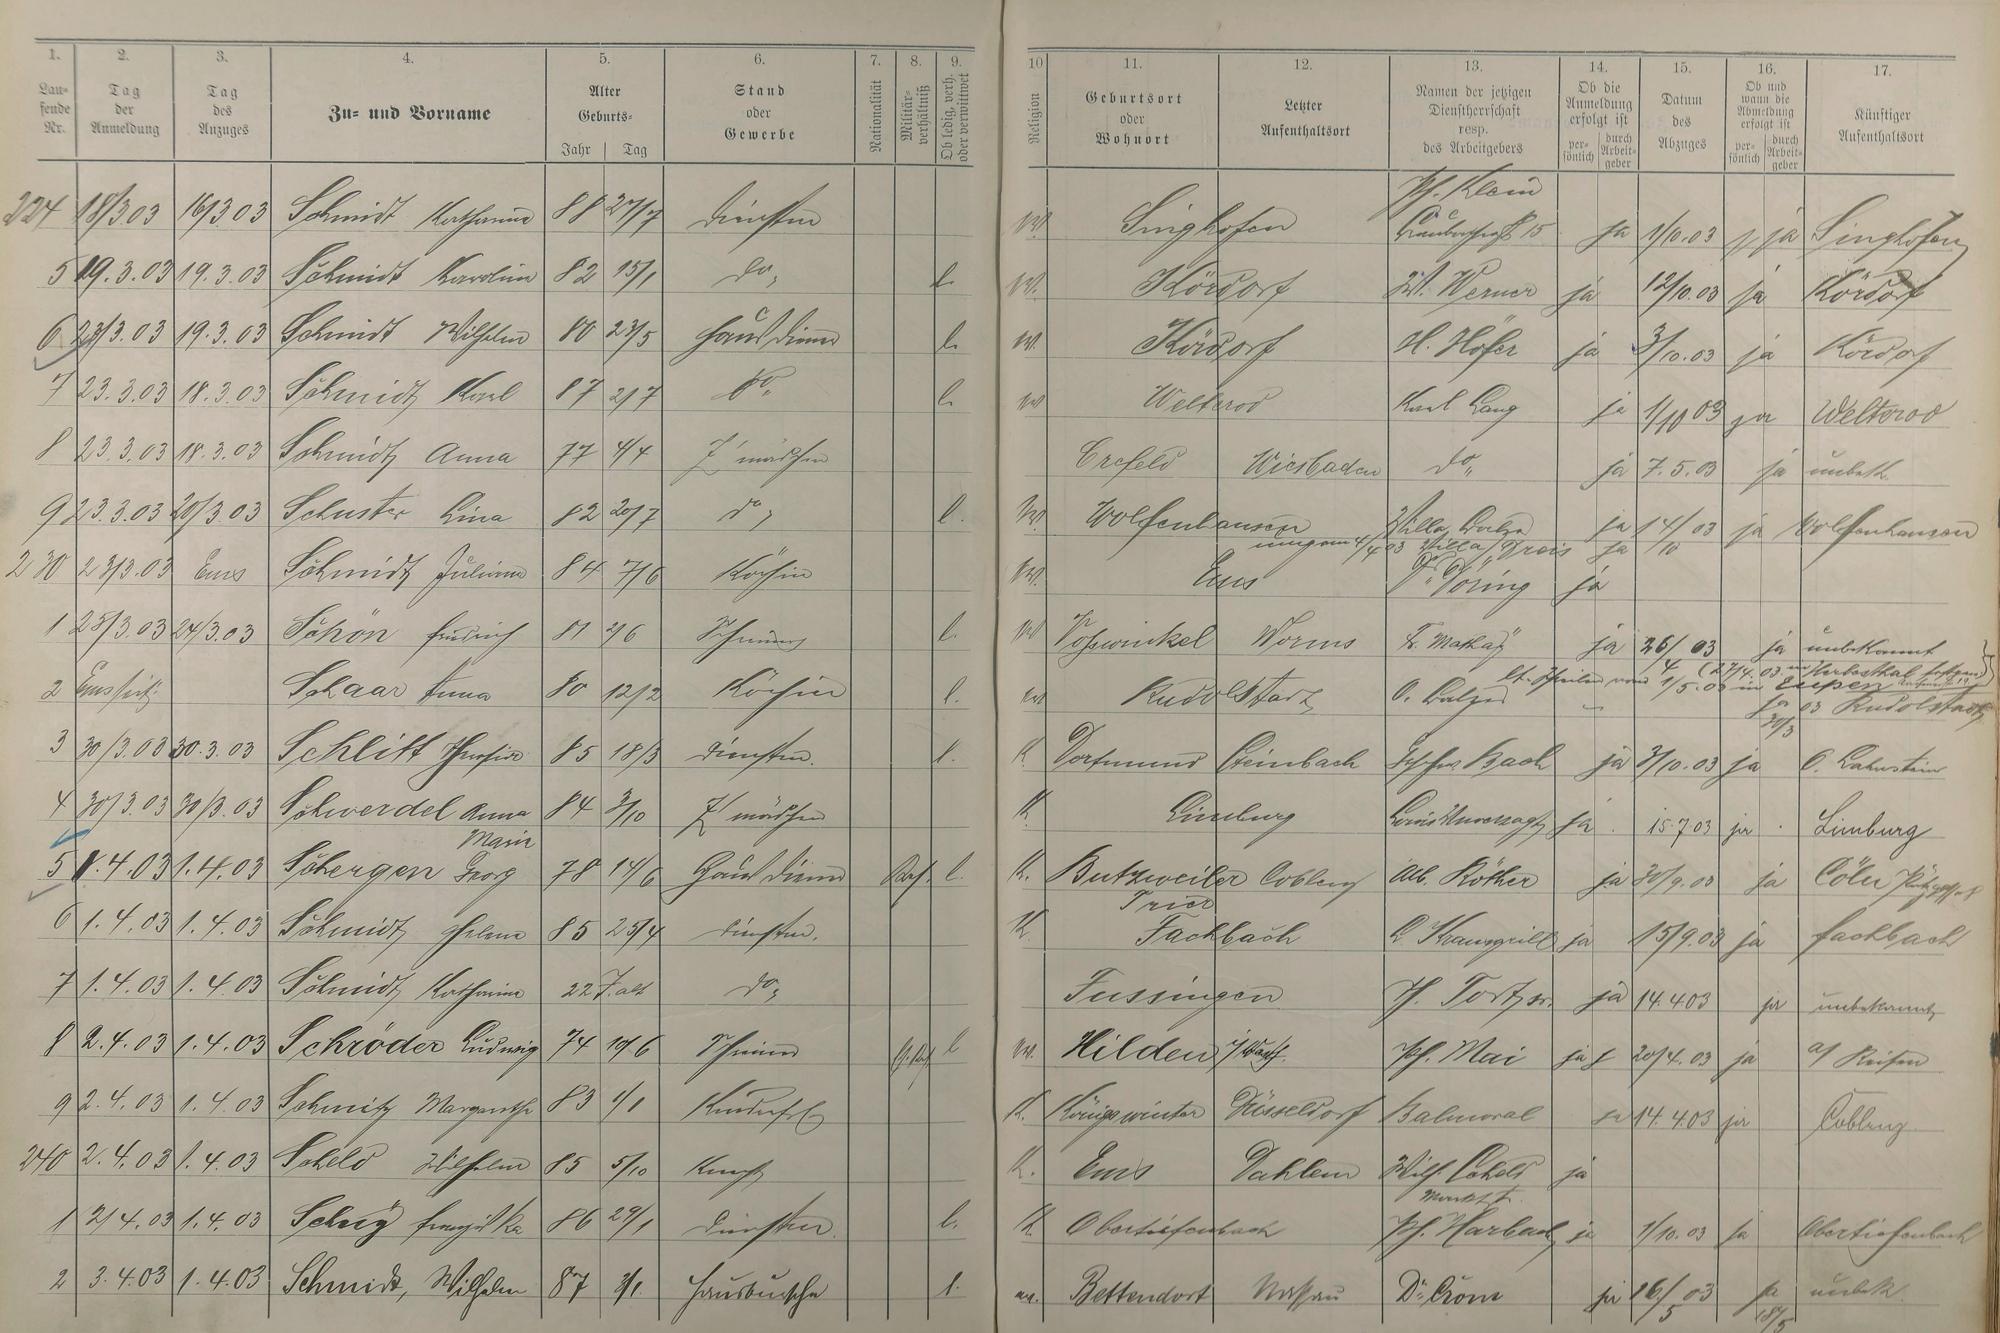 1. 2. 3. 4. 5. 6. 7. 8. 9. 10 11. 12. 13. 14. 15. 16. 17.
Laufende Nr. | Tag der Anmeldung | Tag des Anzuges | Zu- und Vorname | Alter Geburts- Jahr Tag | Stand oder Gewerbe | Nationalität | Militärverhältniß | Ob ledig, verh. oder verwittwet | Religion | Geburtsort oder Wohnort | Letzter Aufenthaltsort | Namen der jetzigen Dienstherrschaft resp. des Arbeitgebers | Ob die Anmeldung erfolgt ist persönlich durch Arbeitgeber | Datum des Abzuges | Ob und wann die Abmeldung erfolgt ist persönlich durch Arbeitgeber | Künftiger Aufenthaltsort
224 18/3 03 16/3 03 Schmidt Katharine 88 27/7 Dienstm Singhofen Ph. Klein 15 ja 1/10. 03 ja Singhofen
5 19. 3. 03 19. 3. 03 Schmidt Karoline 82 15/1 do. l. Kördorf W. Werner ja 12/10. 03 ja Kördorf
6 23/3. 03 19. 3. 03 Schmidt Wilhelm 80 23/5 Hausdiener l. Kördorf H. Höfer ja 3/10. 03 ja Kördorf
7 23. 3. 03 18. 3. 03 Schmidt Karl 87 2/7 do. l. Welterod Karl Lang ja 1/10 03 ja Welterod
8 23. 3. 03 18. 3. 03 Schmidt Anna 77 4/4 Z'mädchen Crefeld Wiesbaden do. ja 7. 5. 03 ja unbek.
9 23. 3. 03 20/3. 03 Schuster Lina 82 20/7 do. l. Wolfenhausen Villa Balzer ja 14/10 03 ja Wolfenhausen
4/4 03 Villa ja
230 23/3. 03 Ems Schmidt Juliane 84 7/6 Köchin Ems Dr. Döring ja
1 25/3. 03 24/3. 03 Schön Friedrich 81 2/6 Schreiner l. Vosswinkel Worms Fr. ja 26/4 03 ja unbekannt
(27/4. 03 Herbesthal
1/5. 03 in Eupen
2 Schaar Anna 80 12/2 Köchin l. Rudolstadt O. Balzer ja 30/3 03 Rudolstadt
3 30/3. 03 30. 3. 03 Schlitt 85 18/3 Dienstm. l. K. Dortmund Steinbach Bach ja 3/10. 03 ja O. Lahnstein
4 30/3. 03 30/3. 03 Schwerdel Anna Maria 84 3/10 Z'mädchen K. Limburg Louis Unverzagt ja 15. 7. 03 ja Limburg
5 1. 4. 03 1. 4. 03 Schergen Georg 78 14/6 Hausdiener l. K. Butzweiler Trier Coblenz Alb. Röther ja 30/9. 03 ja Cöln
6 1. 4. 03 1. 4. 03 Schmidt Helene 85 25/4 Dienstm. K. Fachbach ja 15/9. 03 ja Fachbach
7 1. 4. 03 1. 4. 03 Schmidt Katharina 22 J. alt do. Fussingen ja 14. 4. 03 ja unbekannt
8 2. 4. 03 1. 4. 03 Schröder Ludwig 74 10/6 Schreiner l Hilden Ph. Mai ja 20/4. 03 ja a/ Reisen
9 2. 4. 03 1. 4. 03 Schmitz Margarethe 83 1/1 Kinderfrl K. Königswinter Düsseldorf Balmoral ja 14. 4. 03 ja Coblenz
240 2. 4. 03 1. 4. 03 Scheld Wilhelm 85 5/10 Knecht K. Ems Dahlem Wilh. Scheld Marktstr. ja
1 2/4. 03 1. 4. 03 Franziska 86 29/1 Dienstm. l. K. Obertiefenbach Ph. Harbach ja 1/10. 03 ja Obertiefenbach
2 3. 4. 03 1. 4. 03 Schmidt, Wilhelm 87 3/1 Hausbursche l. Bettendorf Nassau Dr. Crone ja 16/5 03 ja 18/5 unbek.